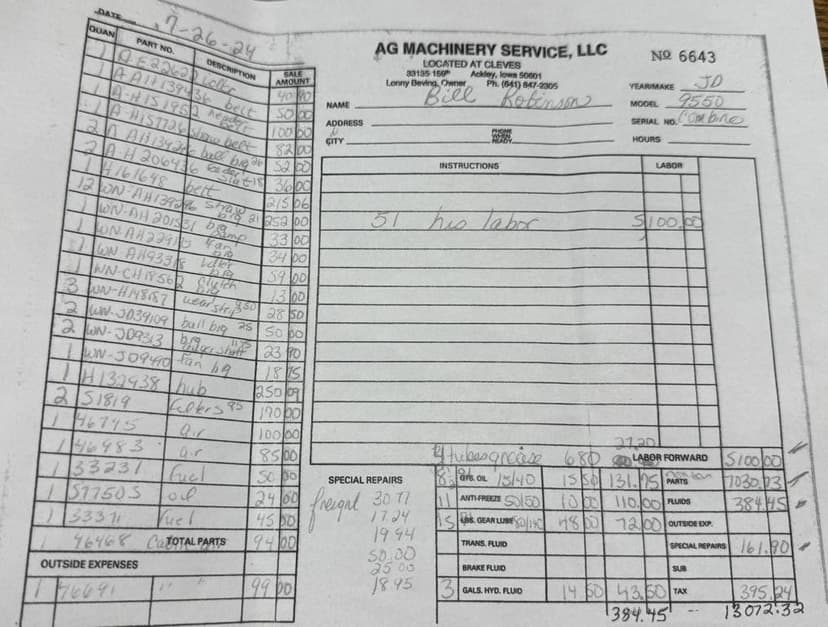 DATE 7-26-24
QUAN PART NO. DESCRIPTION SALE AMOUNT
1 idler 40 40
1 A-AH139436 belt 50 00
1 A-H151952 header belt 100 00
1 A-H157726 belt 82 00
2 ball brg 52 00
2 A-H206436 36 00
1 4161648 belt 215 06
12 WN-AH139216 straw brg 21 252 00
1 WN-AH201531 brg 33 00
1 fan brg 34 00
1 WN AH93318 idler brg 59 00
1 WN-CH18562 clutch brg 13 00
3 WN-H148187 wear strip 950 28 50
2 WN-JD39109 ball brg 25 50 00
2 WN-JD9313 brg 23 90
1 WN-JD9490 fan brg 18 75
1 H132938 hub 250 09
2 51819 filters 85 170 00
1 46745 air 100 00
1 46483 air 85 00
1 33231 fuel 50 00
1 57750S oil 24 00
1 33371 fuel 45 50
1 46468 TOTAL PARTS 94 00
OUTSIDE EXPENSES
1 76691 " " 99 00
AG MACHINERY SERVICE, LLC
LOCATED AT CLEVES
Ackley, Iowa 50601
Lonny Beving, Owner Ph. (641) 847-2305
No 6643
NAME Bill Robinson
ADDRESS
CITY
PHONE WHEN READY
YEAR/MAKE JD
MODEL 9550
SERIAL NO. Combine
HOURS
INSTRUCTIONS LABOR
51 hrs labor 5100.00
27.20
4 tubes grease 680 LABOR FORWARD 5100 00
QTS. OIL 15/40 15 50 131.75 PARTS 7030.93
11 ANTI-FREEZE 50/50 10 00 110.00 FLUIDS 384.45
1.5 LBS. GEAR LUBE 48 00 72.00 OUTSIDE EXP.
TRANS. FLUID SPECIAL REPAIRS 161.90
BRAKE FLUID SUB
3 GALS. HYD. FLUID 14 50 43.50 TAX 395.24
384.45 -- 13072.32
SPECIAL REPAIRS
freight 30.77
17.24
19.94
50.00
25 00
18.95